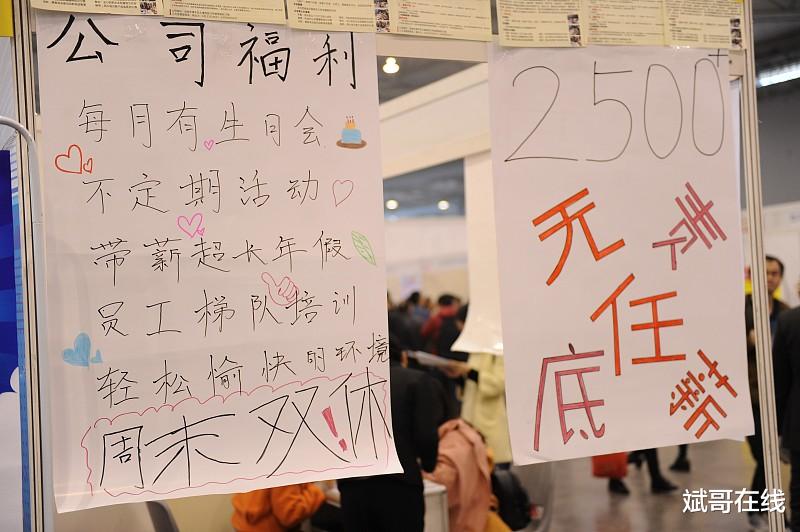 公司福利
每月有生日会
不定期活动
带薪超长年假
员工梯队培训
轻松愉快的环境
周末双休!
2500+
无责
任
底薪
斌哥在线